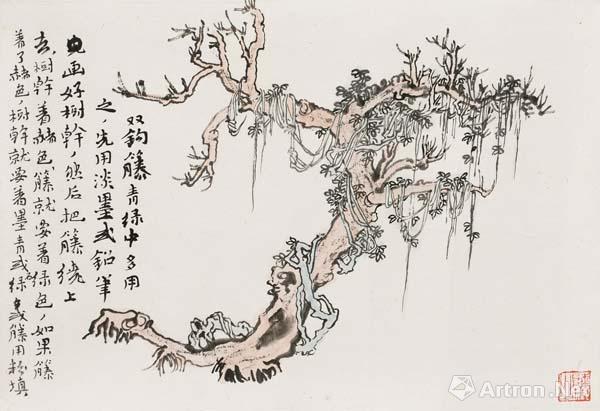 双钩籐青绿中多用
之，先用淡墨或铅笔
先画好树幹，然后把籐绕上
去，树幹着赭色籐就要着绿色，如果籐
着了赭色，树幹就要着墨青或绿或籐用粉填
Artron.Net